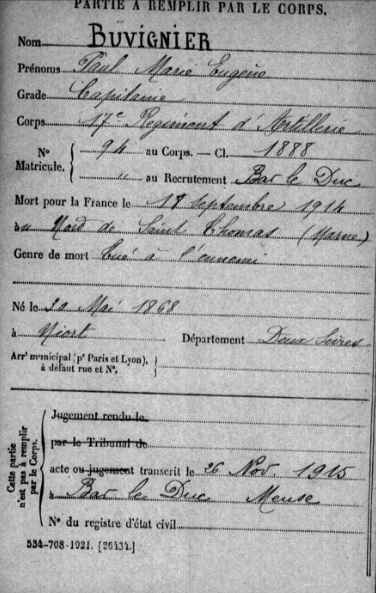 PARTIE À REMPLIR PAR LE CORPS.
Nom BUVIGNIER
Prénoms Paul Marie Eugène
Grade Capitaine
Corps 17e Régiment d'Artillerie
N° Matricule. { 94 au Corps. — Cl. 1888
" au Recrutement Bar le Duc
Mort pour la France le 18 septembre 1914
au Nord de Saint Thomas (Marne)
Genre de mort tué à l'ennemi
Né le 20 Mai 1868
à Niort Département Deux Sèvres
Arr' municipal (p' Paris et Lyon), à défaut rue et N°.
Cette partie n'est pas à remplir par le Corps.
Jugement rendu le
par le Tribunal de
acte ou jugement transcrit le 26 Nov 1915
à Bar le Duc Meuse
N° du registre d'état civil
534-708-1921. [26434.]